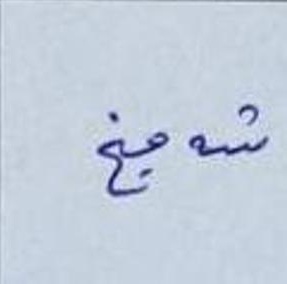 شه میخ